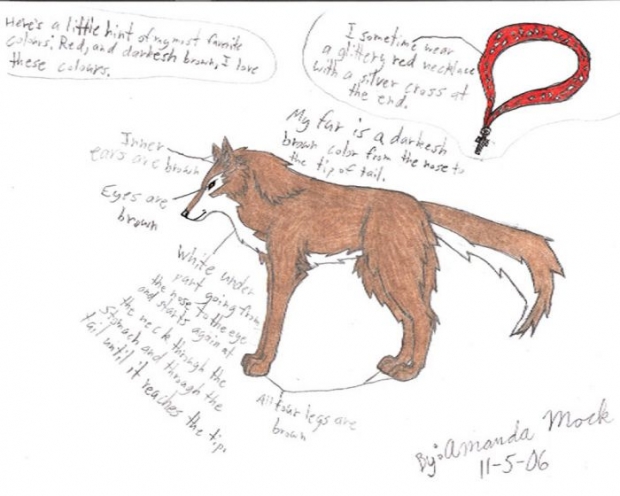 Here's a little hint of my most favorite
colours. Red, and darkesh brown, I love
these colours.
I sometime wear
a glittery red necklace
with a silver cross at
the end.
My fur is a darkesh
brown color from the nose to
the tip of tail.
Inner
ears are brown
Eyes are
brown
White under
part going from
the nose to the eye
and starts again at
the neck through the
stomach and through the
tail until it reaches the tip.
All four legs are
brown
By: Amanda Mock
11-5-06